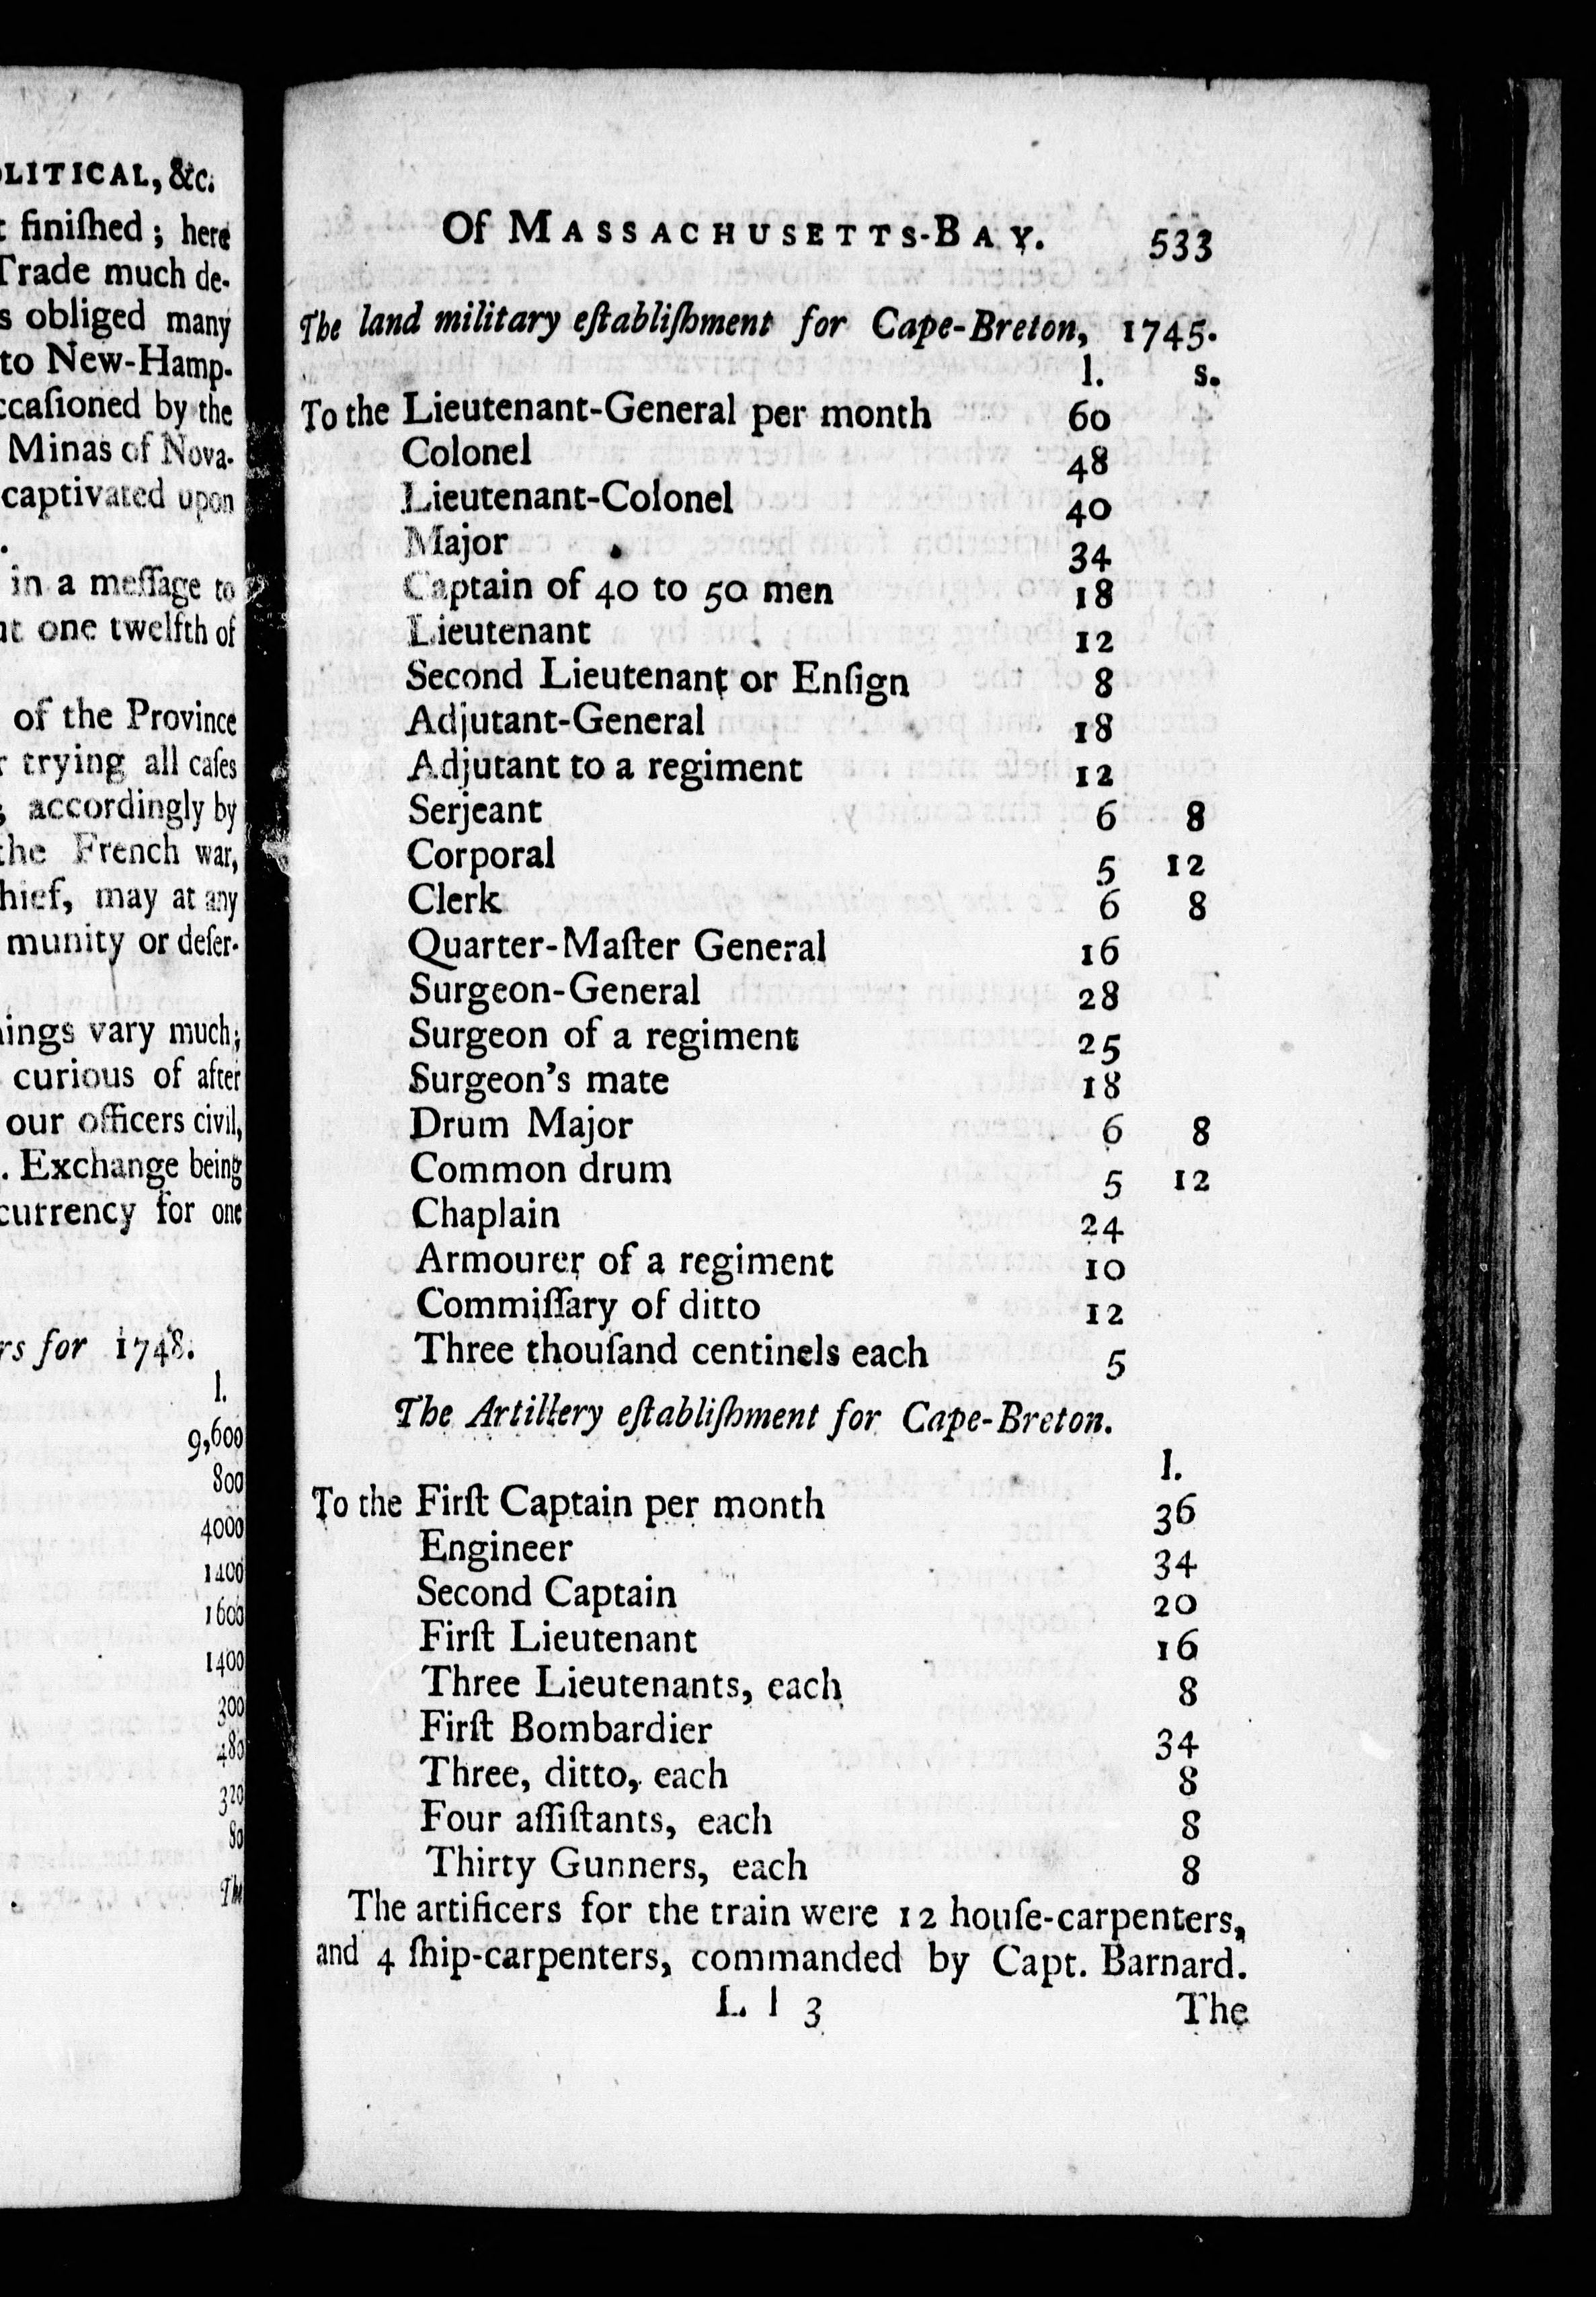 LITICAL, &c.
finiſhed ; here
Trade much de-
s obliged many
to New-Hamp-
ccaſioned by the
Minas of Nova-
captivated upon
in a meſſage to
one twelfth of
of the Province
trying all caſes
accordingly by
the French war,
hief, may at any
munity or deſer-
ings vary much;
curious of after
our officers civil,
. Exchange being
currency for one
rs for 1748.
l.
9,600
800
4000
1400
1600
1400
300
480
320
80
The
Of MASSACHUSETTS-BAY. 533
The land military eſtabliſhment for Cape-Breton, 1745.
l. s.
To the Lieutenant-General per month 60
Colonel 48
Lieutenant-Colonel 40
Major 34
Captain of 40 to 50 men 18
Lieutenant 12
Second Lieutenant or Enſign 8
Adjutant-General 18
Adjutant to a regiment 12
Serjeant 6 8
Corporal 5 12
Clerk 6 8
Quarter-Maſter General 16
Surgeon-General 28
Surgeon of a regiment 25
Surgeon's mate 18
Drum Major 6 8
Common drum 5 12
Chaplain 24
Armourer of a regiment 10
Commiſſary of ditto 12
Three thouſand centinels each 5
The Artillery eſtabliſhment for Cape-Breton.
l.
To the Firſt Captain per month 36
Engineer 34
Second Captain 20
Firſt Lieutenant 16
Three Lieutenants, each 8
Firſt Bombardier 34
Three, ditto, each 8
Four aſſiſtants, each 8
Thirty Gunners, each 8
The artificers for the train were 12 houſe-carpenters,
and 4 ſhip-carpenters, commanded by Capt. Barnard.
L l 3 The